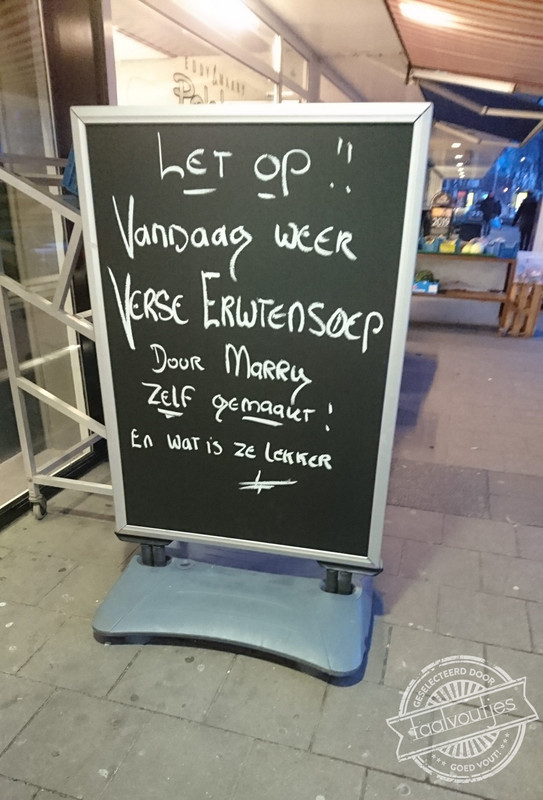 EDDY & MARRY
LET OP !!
VANDAAG WEER
VERSE ERWTENSOEP
DOOR MARRY
ZELF gemaakt !
En WAT is ZE LEKKER
2019
GESELECTEERD DOOR
taalvoutjes
GOED VOUT!